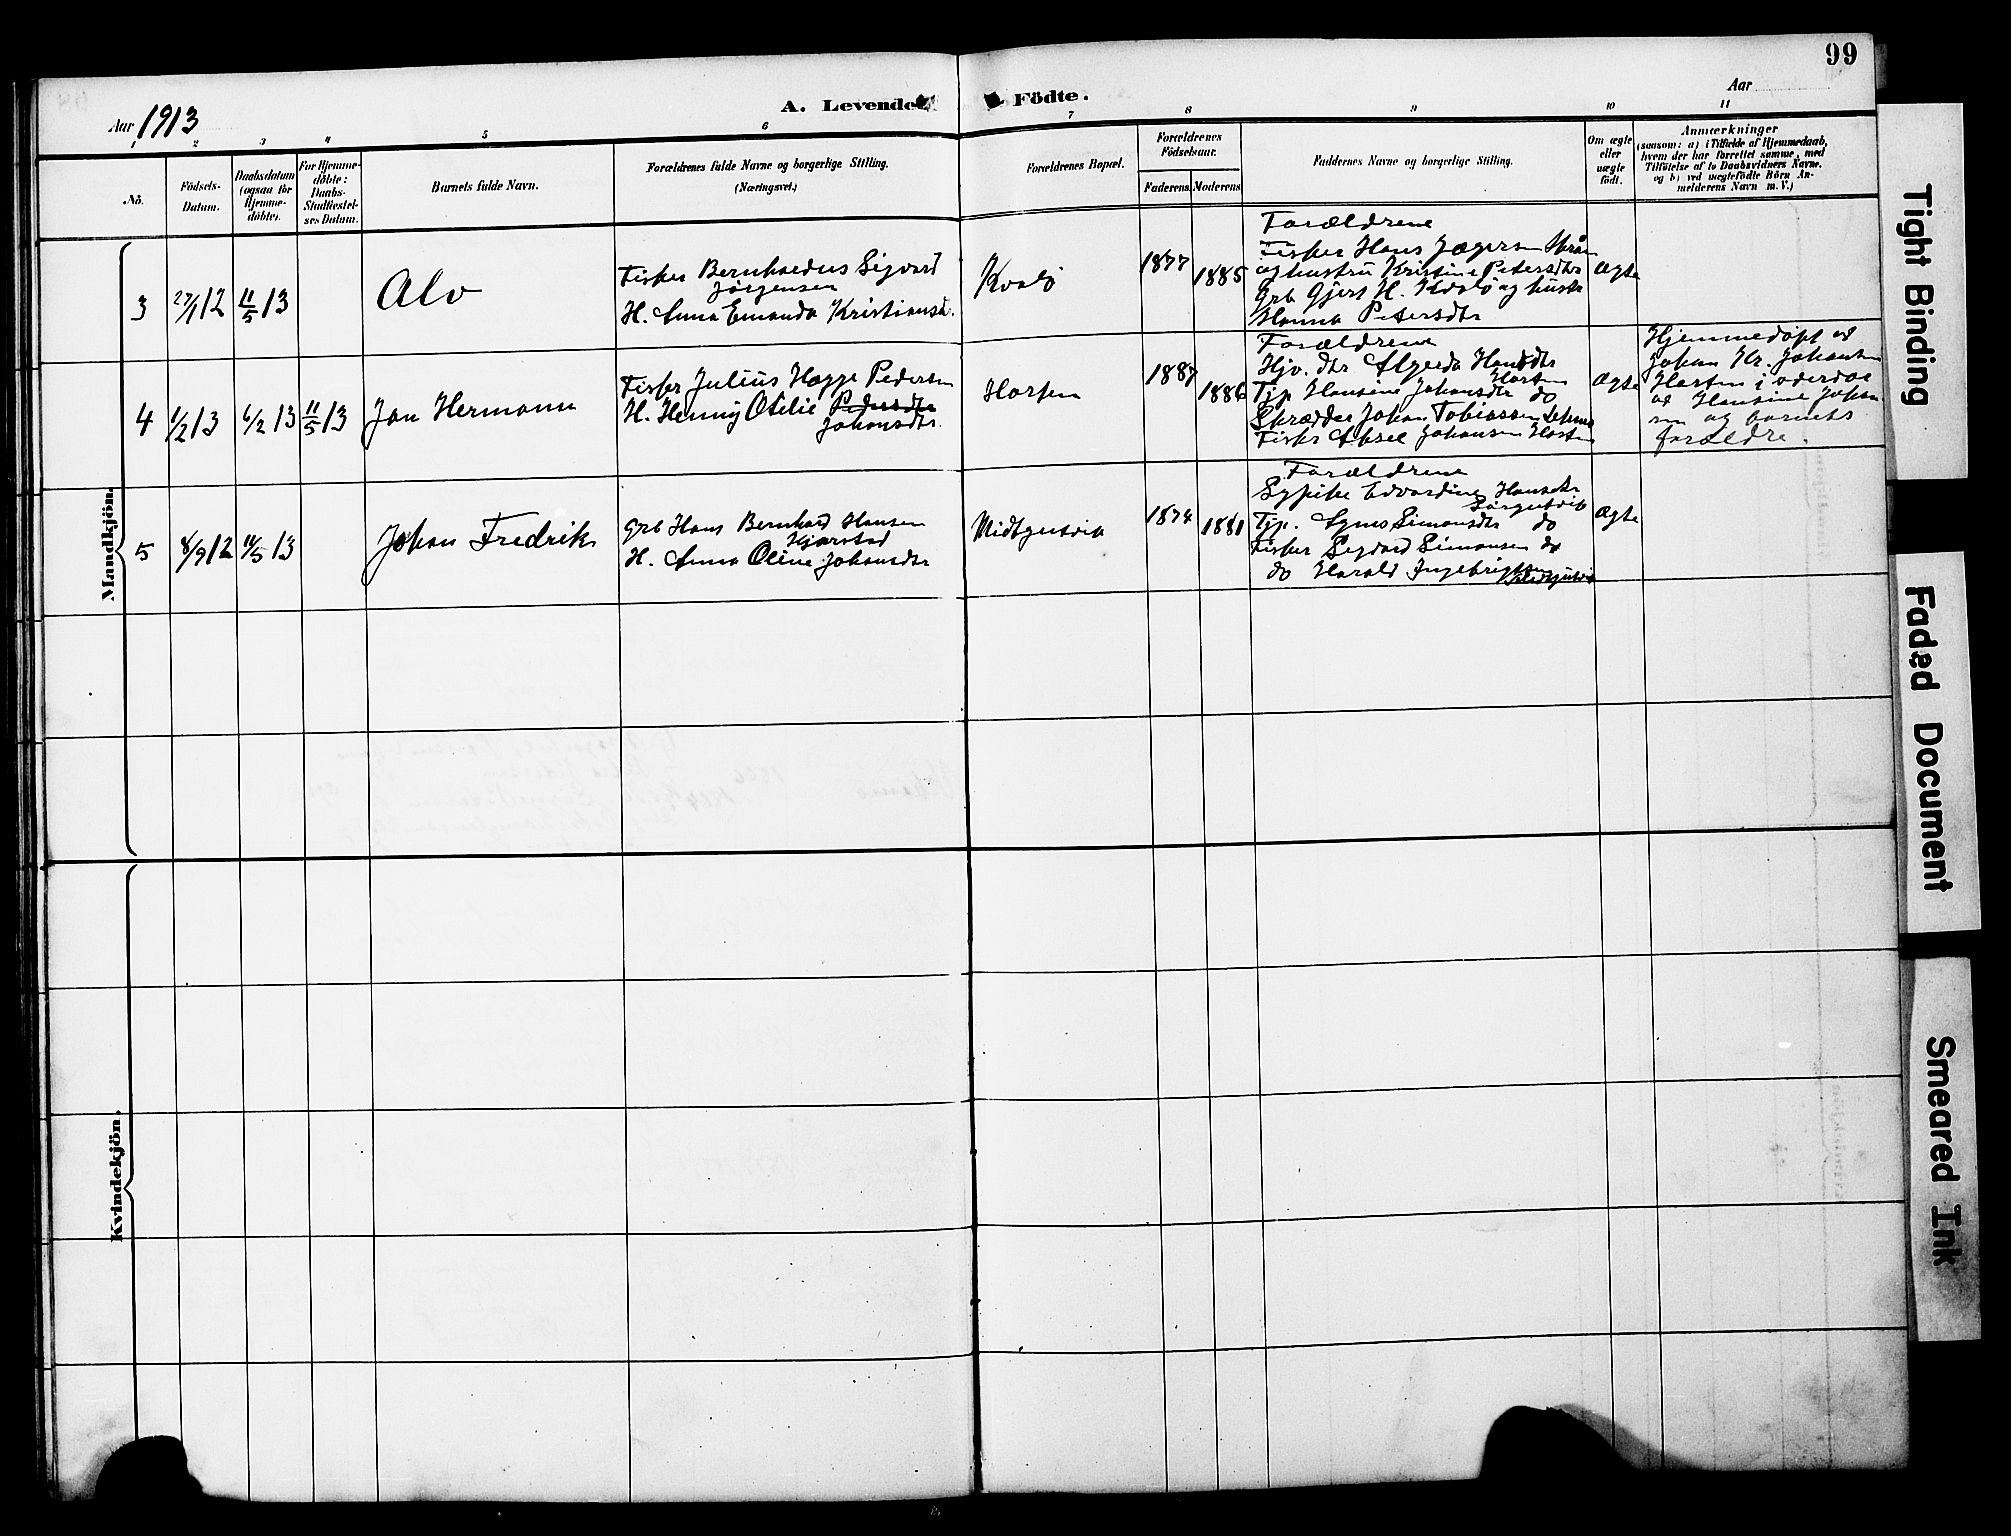 99
Aar 1913
A. Levende
Födte.
Aar
1 2 3 4 5 6 7 8 9 10 11
No.
Födsels-
Datum.
Daabsdatum
(ogsaa for
Hjemme-
døbte).
For Hjemme-
døbte:
Daabs-
Stadfæstel-
ses Datum.
Barnets fulde Navn.
Forældrenes fulde Navne og borgerlige Stilling.
(Næringsvei.)
Forældrenes Bopæl.
Forældrenes
Födselsaar.
Faderens
Moderens
Faddernes Navne og borgerlige Stilling.
Om ægte
eller
uægte
født.
Anmærkninger
(saasom: a) i Tilfælde af Hjemmedaab,
hvem der har forrettet samme, med
Tilføielse af to Daabsvidners Navne,
og b) ved uægtefødte Börn An-
melderens Navn m. V.)
Mandkjön.
3
27/1 12
11/5 13
Alv
Fisker Bernhardus Sigvard
Jörgensen
H. Anna Emanda Kristiansd.
Kvalö
1877
1885
Forældrene
Fisker Hans Jægersen
og hustru Kristine Petersdtr
Grb Gjert H. Kvalö og hustr
Hanna Petersdtr
Ægte
4
1/2 13
6/2 13
11/5 13
Jan Hermann
Fisker Julius Hagge Pedersen
H. Henny Otelie Pedersdtr
Johansdtr.
Horsen
1887
1886
Forældrene
Hjv. dtr Algerda Hansdtr
Horsen
Tjp Hansine Johansdtr do
Skrædder Johan Tobiassen
Fisker Aksel Johansen Horsen
Ægte
Hjemmedøpt av
Johan Kr. Johansen
Horsen i overvær
av Hansine Johan
sen og barnets
forældre.
5
8/9 12
11/5 13
Johan Fredrik
Grb Hans Bernhard Hansen
Hjørstad
H. Anna Oline Johansdtr
Midtgutvik
1874
1881
Forældrene
Sypike Edvardine Hansdtr
Sörgutvik
Tjp. Agnes Simonsdtr do
Fisker Sigvard Simonsen do
do Harald Ingebrigtsen
Midtgutvik
Ægte
Kvindekjön.
Tight Binding
Faded Document
Smeared Ink